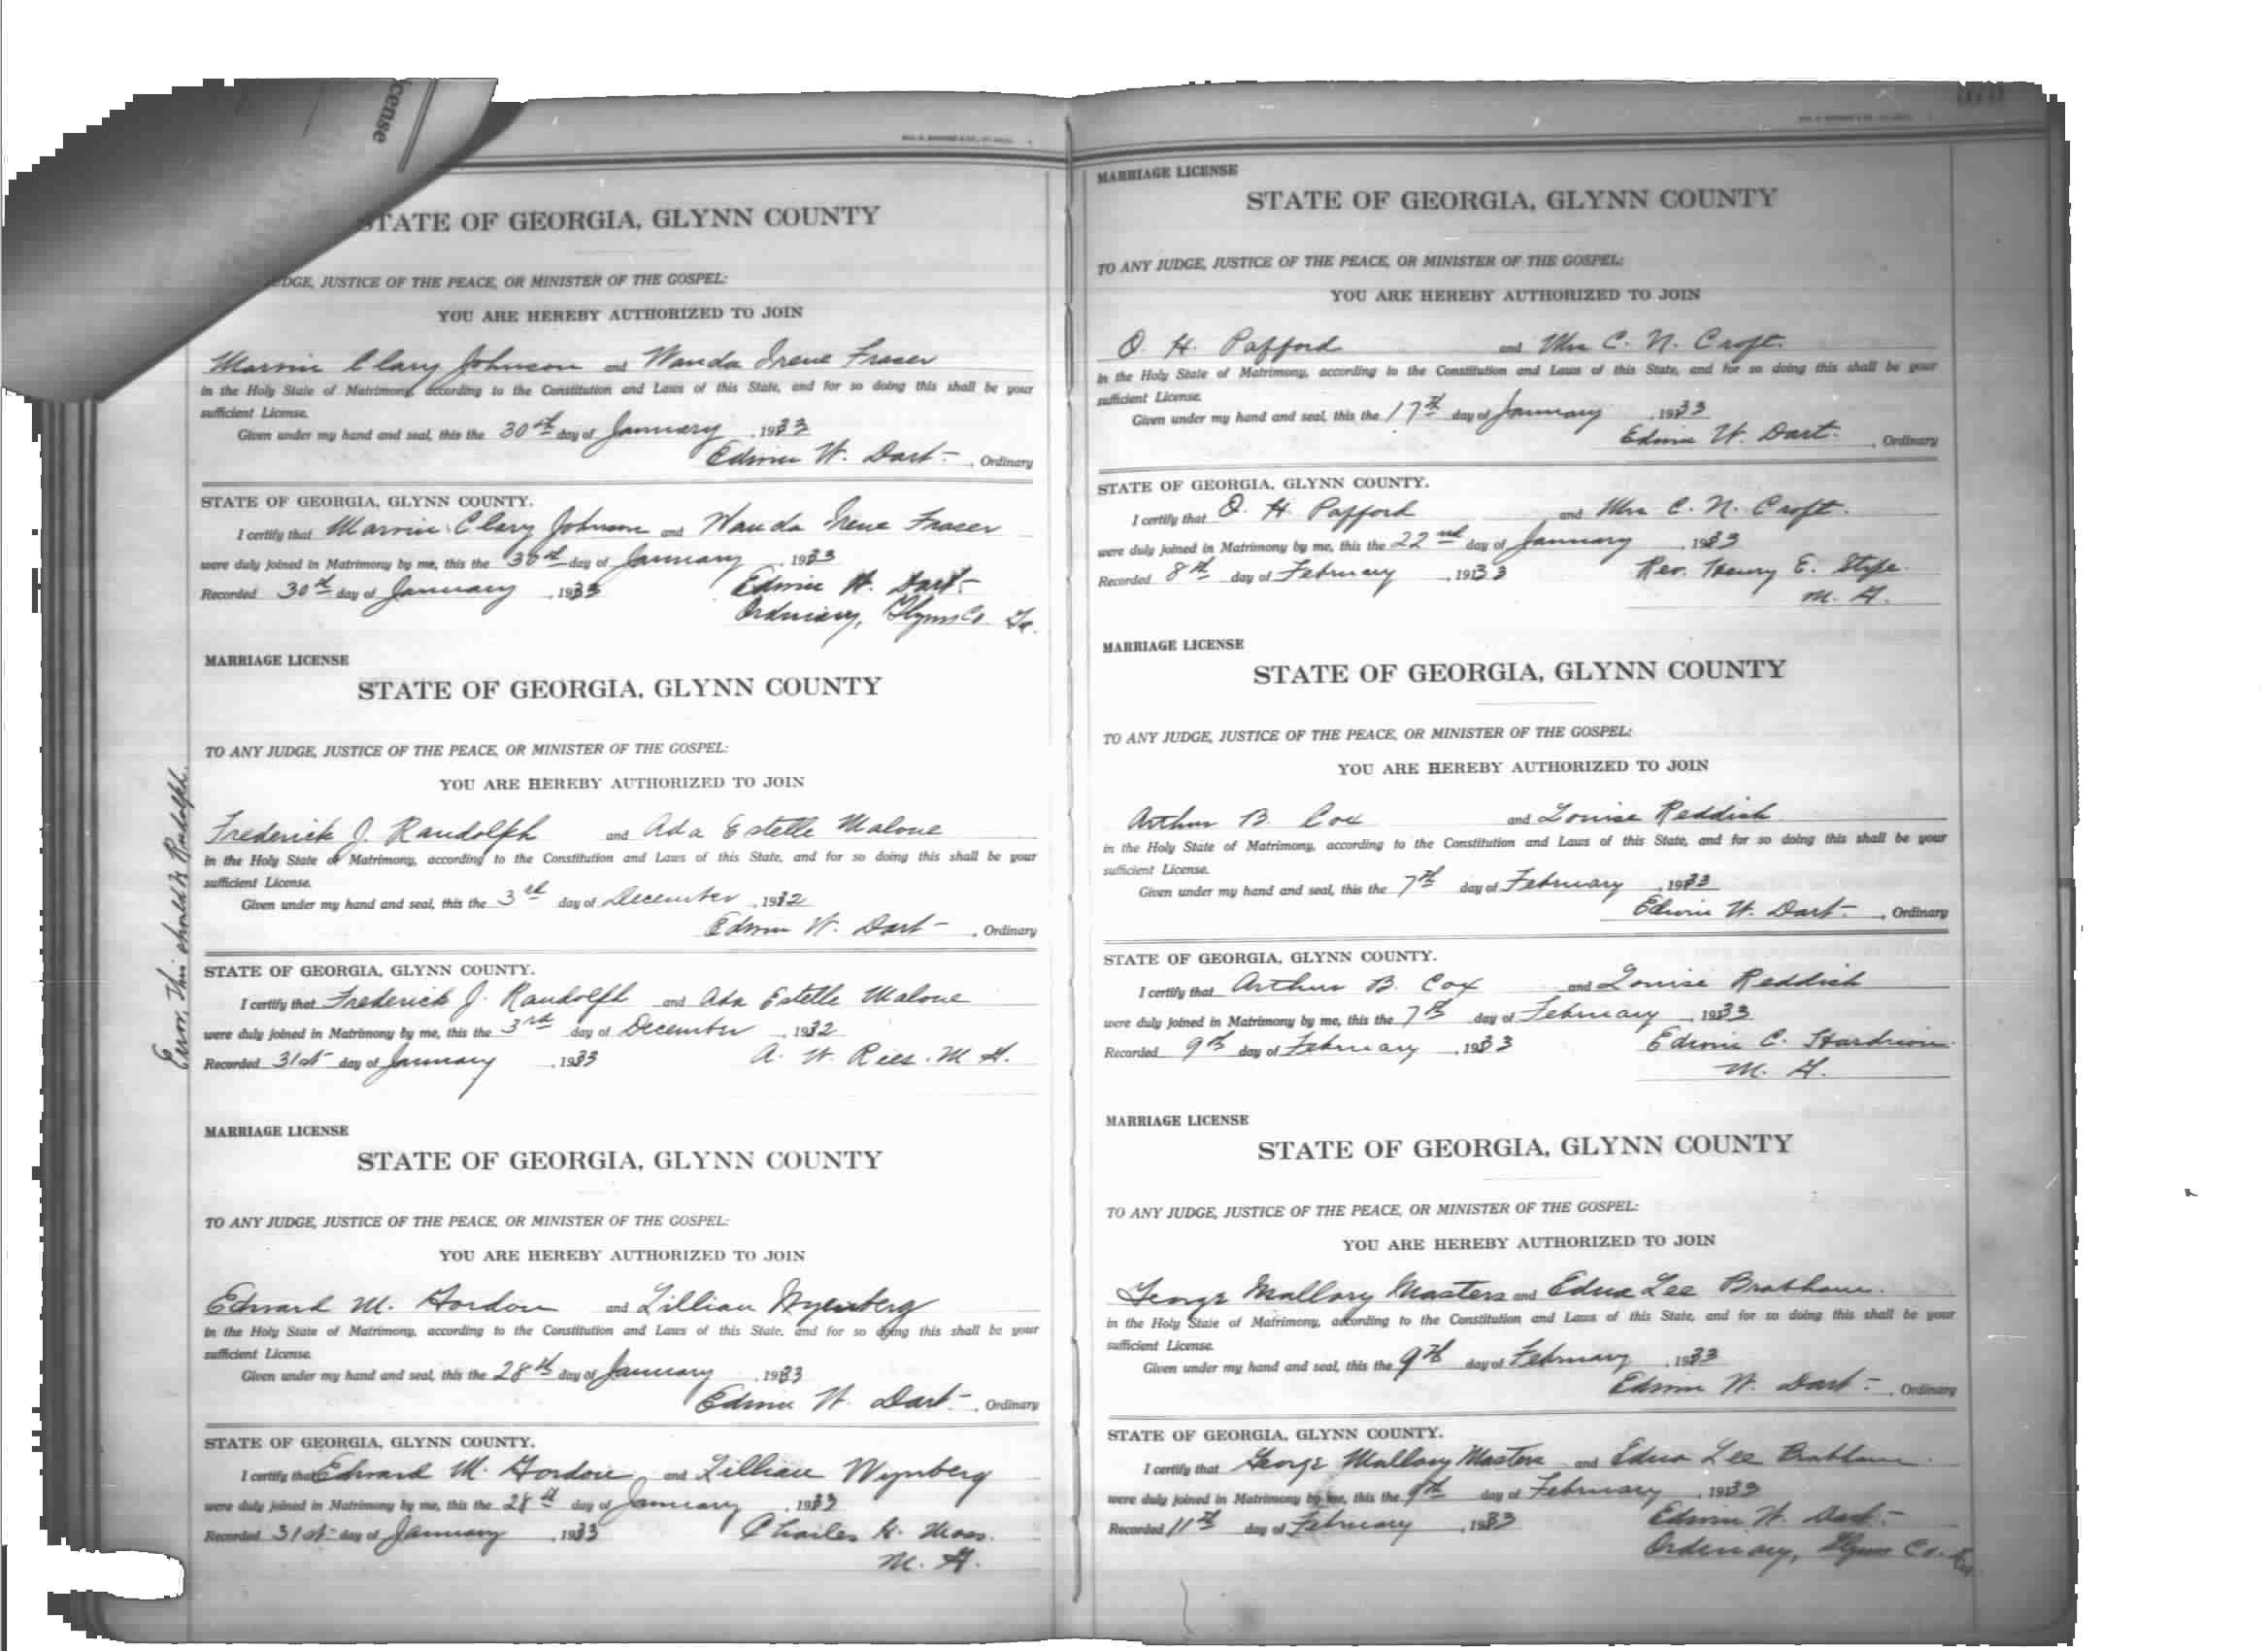 cense
STATE OF GEORGIA, GLYNN COUNTY
JUDGE, JUSTICE OF THE PEACE, OR MINISTER OF THE GOSPEL:
YOU ARE HEREBY AUTHORIZED TO JOIN
Marvin Clary Johnson and Wanda Irene Fraser
in the Holy State of Matrimony, according to the Constitution and Laws of this State, and for so doing this shall be your
sufficient License.
Given under my hand and seal, this the 30th day of January, 1933
Edwin W. Dart, Ordinary
STATE OF GEORGIA, GLYNN COUNTY.
I certify that Marvin Clary Johnson and Wanda Irene Fraser
were duly joined in Matrimony by me, this the 30th day of January, 1933
Recorded 30th day of January, 1933 Edwin W. Dart
Ordinary, Glynn Co. Ga.
MARRIAGE LICENSE
STATE OF GEORGIA, GLYNN COUNTY
TO ANY JUDGE, JUSTICE OF THE PEACE, OR MINISTER OF THE GOSPEL:
YOU ARE HEREBY AUTHORIZED TO JOIN
Frederick J. Randolph and Ada Estelle Malone
in the Holy State of Matrimony, according to the Constitution and Laws of this State, and for so doing this shall be your
sufficient License.
Given under my hand and seal, this the 3rd day of December, 1932
Edwin W. Dart, Ordinary
STATE OF GEORGIA, GLYNN COUNTY.
I certify that Frederick J. Randolph and Ada Estelle Malone
were duly joined in Matrimony by me, this the 3rd day of December, 1932
Recorded 31st day of January, 1933 A. W. Rees. M. G.
Error, This should be Randolph.
MARRIAGE LICENSE
STATE OF GEORGIA, GLYNN COUNTY
TO ANY JUDGE, JUSTICE OF THE PEACE, OR MINISTER OF THE GOSPEL:
YOU ARE HEREBY AUTHORIZED TO JOIN
Edward M. Gordon and Lillian Wynberg
in the Holy State of Matrimony, according to the Constitution and Laws of this State, and for so doing this shall be your
sufficient License.
Given under my hand and seal, this the 28th day of January, 1933
Edwin W. Dart, Ordinary
STATE OF GEORGIA, GLYNN COUNTY.
I certify that Edward M. Gordon, and Lillian Wynberg
were duly joined in Matrimony by me, this the 28th day of January, 1933
Recorded 31st day of January, 1933 Charles H. Moss.
M. G.
MARRIAGE LICENSE
STATE OF GEORGIA, GLYNN COUNTY
TO ANY JUDGE, JUSTICE OF THE PEACE, OR MINISTER OF THE GOSPEL:
YOU ARE HEREBY AUTHORIZED TO JOIN
O. H. Pafford and Mrs C. N. Croft.
in the Holy State of Matrimony, according to the Constitution and Laws of this State, and for so doing this shall be your
sufficient License.
Given under my hand and seal, this the 17th day of January, 1933
Edwin W. Dart., Ordinary
STATE OF GEORGIA, GLYNN COUNTY.
I certify that O. H. Pafford and Mrs C. N. Croft.
were duly joined in Matrimony by me, this the 22nd day of January, 1933
Recorded 8th day of February, 1933 Rev. Henry E. Stipe.
M. G.
MARRIAGE LICENSE
STATE OF GEORGIA, GLYNN COUNTY
TO ANY JUDGE, JUSTICE OF THE PEACE, OR MINISTER OF THE GOSPEL:
YOU ARE HEREBY AUTHORIZED TO JOIN
Arthur B. Cox and Louise Reddick
in the Holy State of Matrimony, according to the Constitution and Laws of this State, and for so doing this shall be your
sufficient License.
Given under my hand and seal, this the 7th day of February, 1933
Edwin W. Dart, Ordinary
STATE OF GEORGIA, GLYNN COUNTY.
I certify that Arthur B. Cox and Louise Reddick
were duly joined in Matrimony by me, this the 7th day of February, 1933
Recorded 9th day of February, 1933 Edwin C.
M. G.
MARRIAGE LICENSE
STATE OF GEORGIA, GLYNN COUNTY
TO ANY JUDGE, JUSTICE OF THE PEACE, OR MINISTER OF THE GOSPEL:
YOU ARE HEREBY AUTHORIZED TO JOIN
George Mallory Masters and Edna Lee Brabham.
in the Holy State of Matrimony, according to the Constitution and Laws of this State, and for so doing this shall be your
sufficient License.
Given under my hand and seal, this the 9th day of February, 1933
Edwin W. Dart, Ordinary
STATE OF GEORGIA, GLYNN COUNTY.
I certify that George Mallory Masters and Edna Lee Brabham.
were duly joined in Matrimony by me, this the 9th day of February, 1933
Recorded 11th day of February, 1933 Edwin W. Dart
Ordinary, Glynn Co. Ga